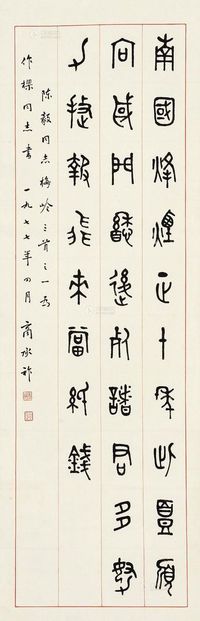 南國烽煙正十年此頭須
向國門懸後死諸君多努
力捷報飛來當紙錢
陳毅同志梅岭三首之一為
作樑同志書 一九七七年四月 商承祚